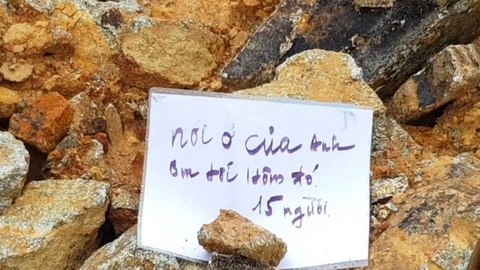 nơi ở của Anh
Em tới hôm đó
15 người